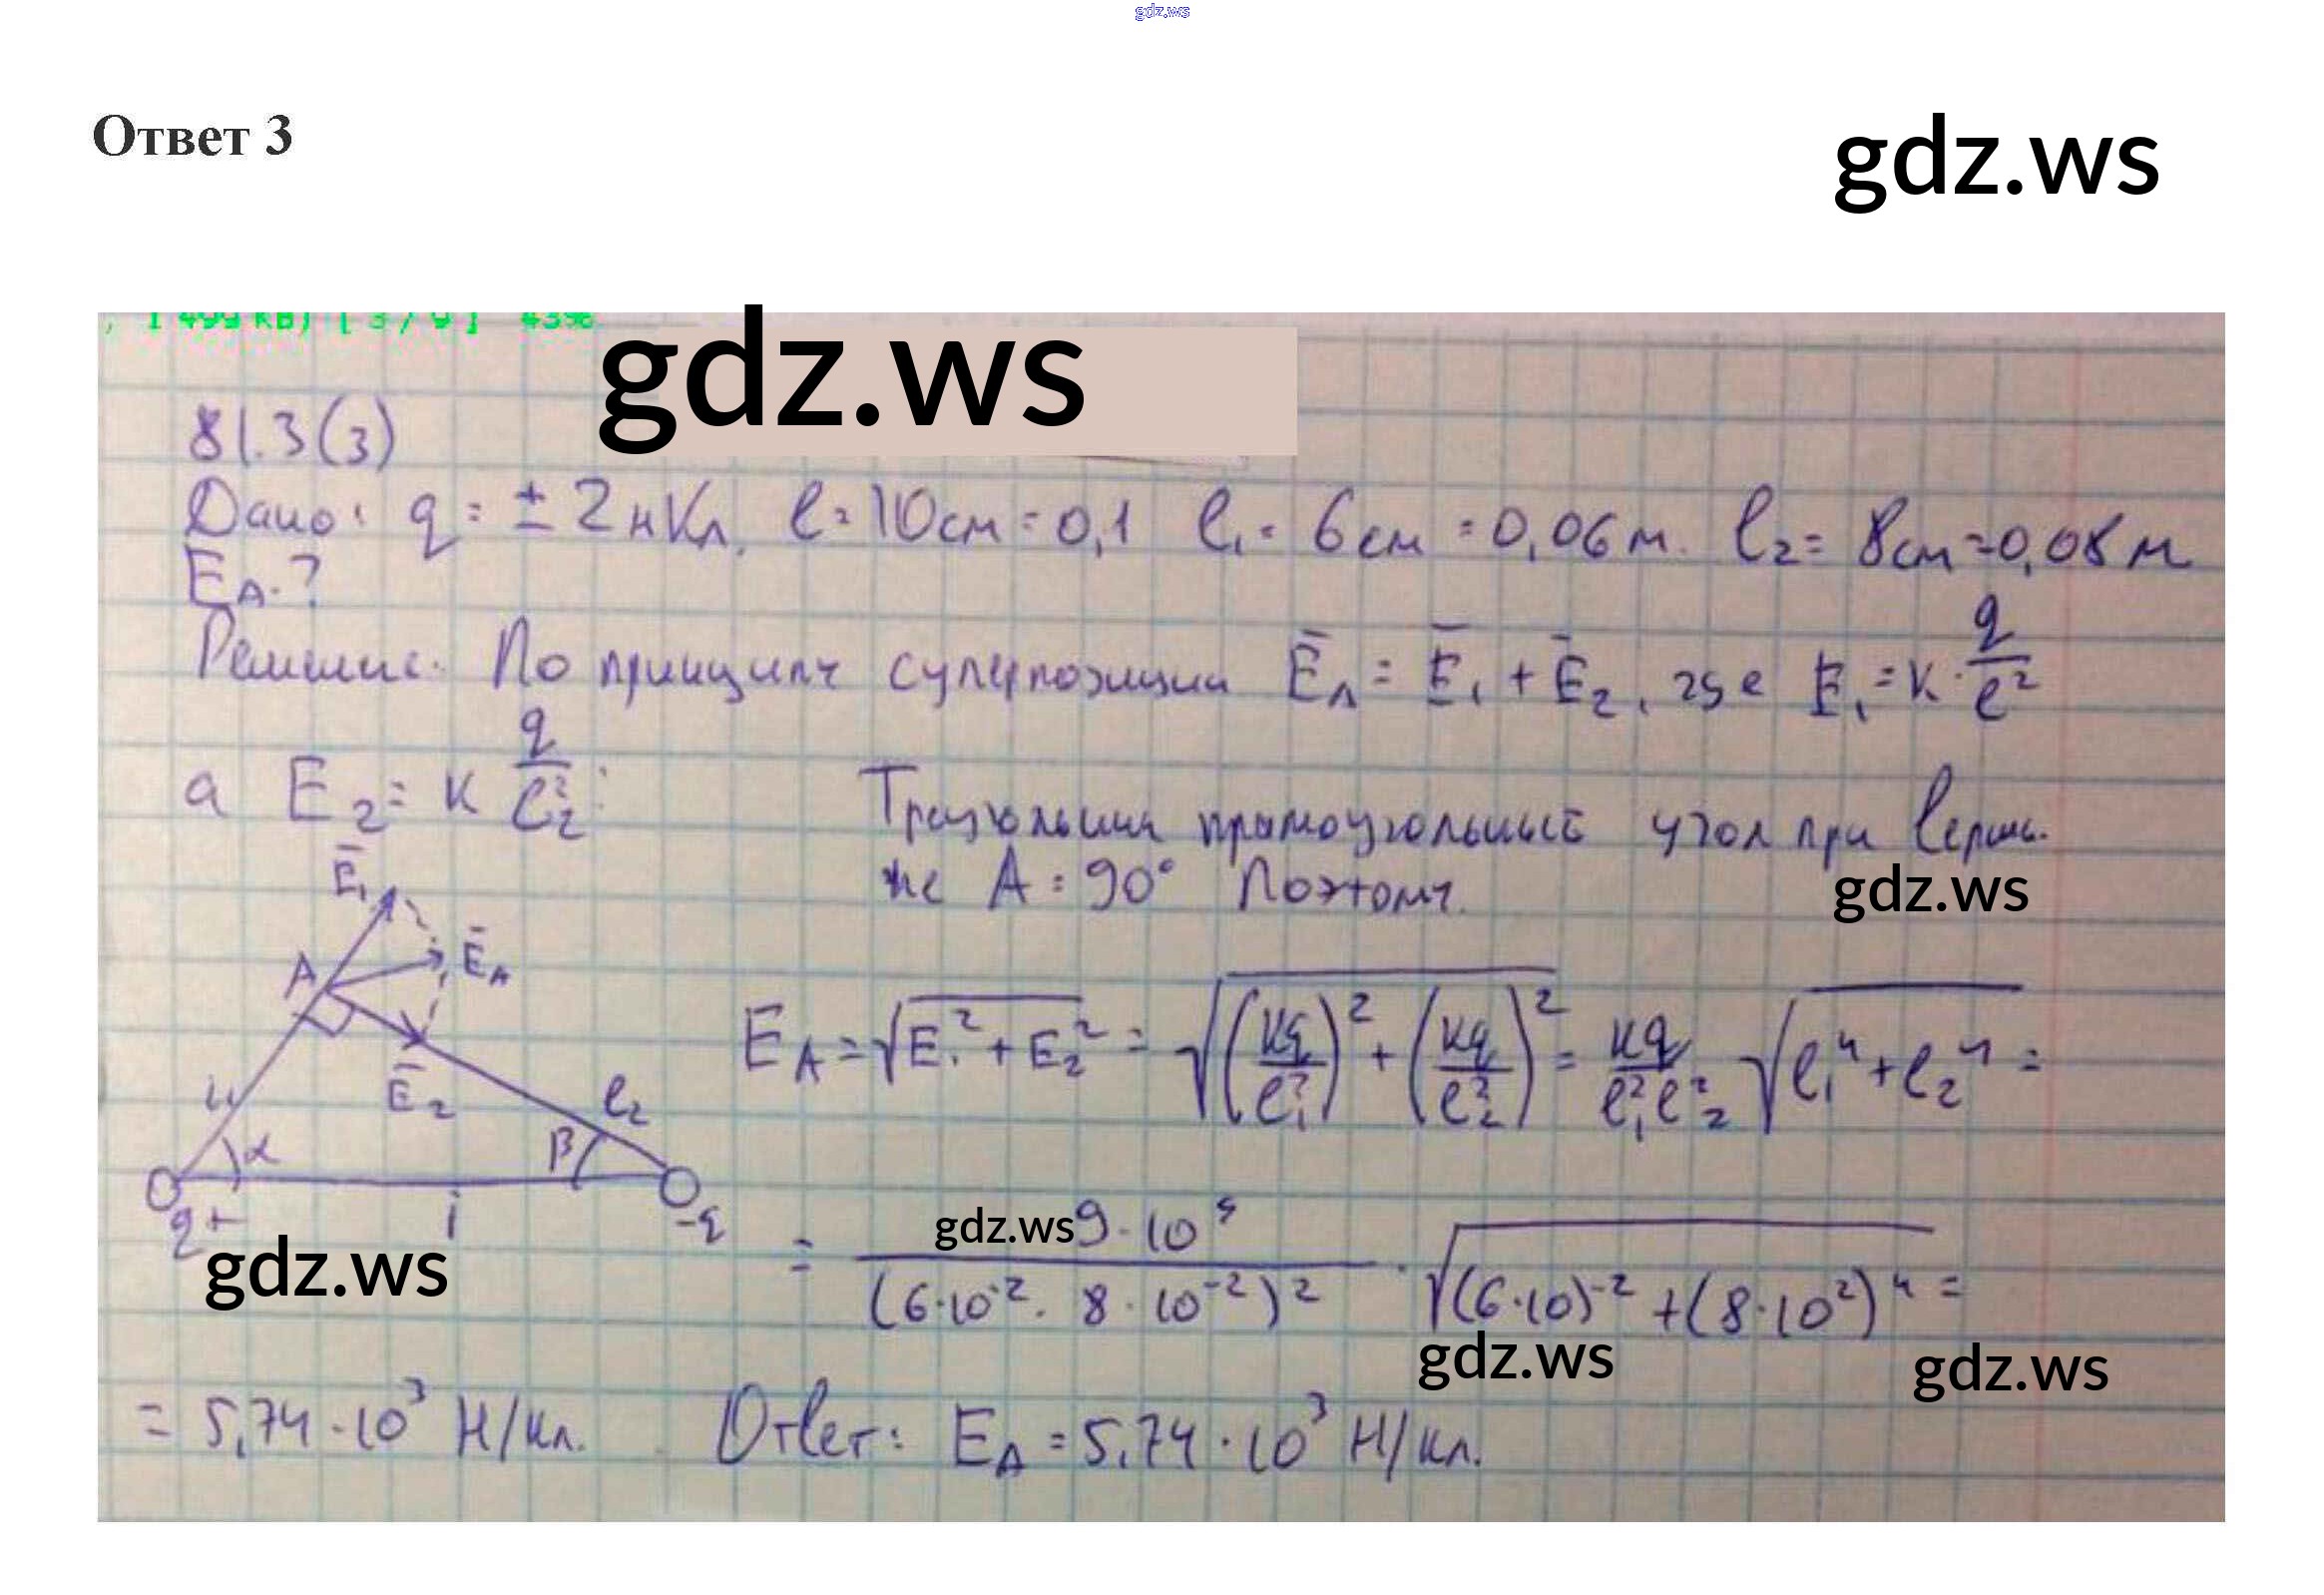 gdz.ws
Ответ 3
gdz.ws
, 1 499 KB) [ 3 / 9 ] 43%
gdz.ws
81.3(3)
Дано: q = ± 2нКл, l = 10см = 0,1 l₁ = 6см = 0,06м. l₂ = 8см = 0,08м
E_A-?
Решение. По принципу суперпозиции Ē_A = Ē₁ + Ē₂, где E₁ = к · q/l²
а E₂ = к q/l₂² :
Треугольник прямоугольный угол при верши-
не A = 90° Поэтому.
gdz.ws
Ē₁
A Ē_A
Ē₂ l₂
α β
q+ l -q
gdz.ws
E_A = √(E₁² + E₂²) = √((кq/l₁²)² + (кq/l₂²)²) = кq/(l₁²l₂²) √(l₁⁴ + l₂⁴) =
gdz.ws
= 9·10⁹/(6·10⁻² · 8·10⁻²)² · √((6·10)⁻² + (8·10²)⁴) =
gdz.ws
gdz.ws
= 5,74·10³ Н/Кл. Ответ: E_A = 5,74·10³ Н/Кл.